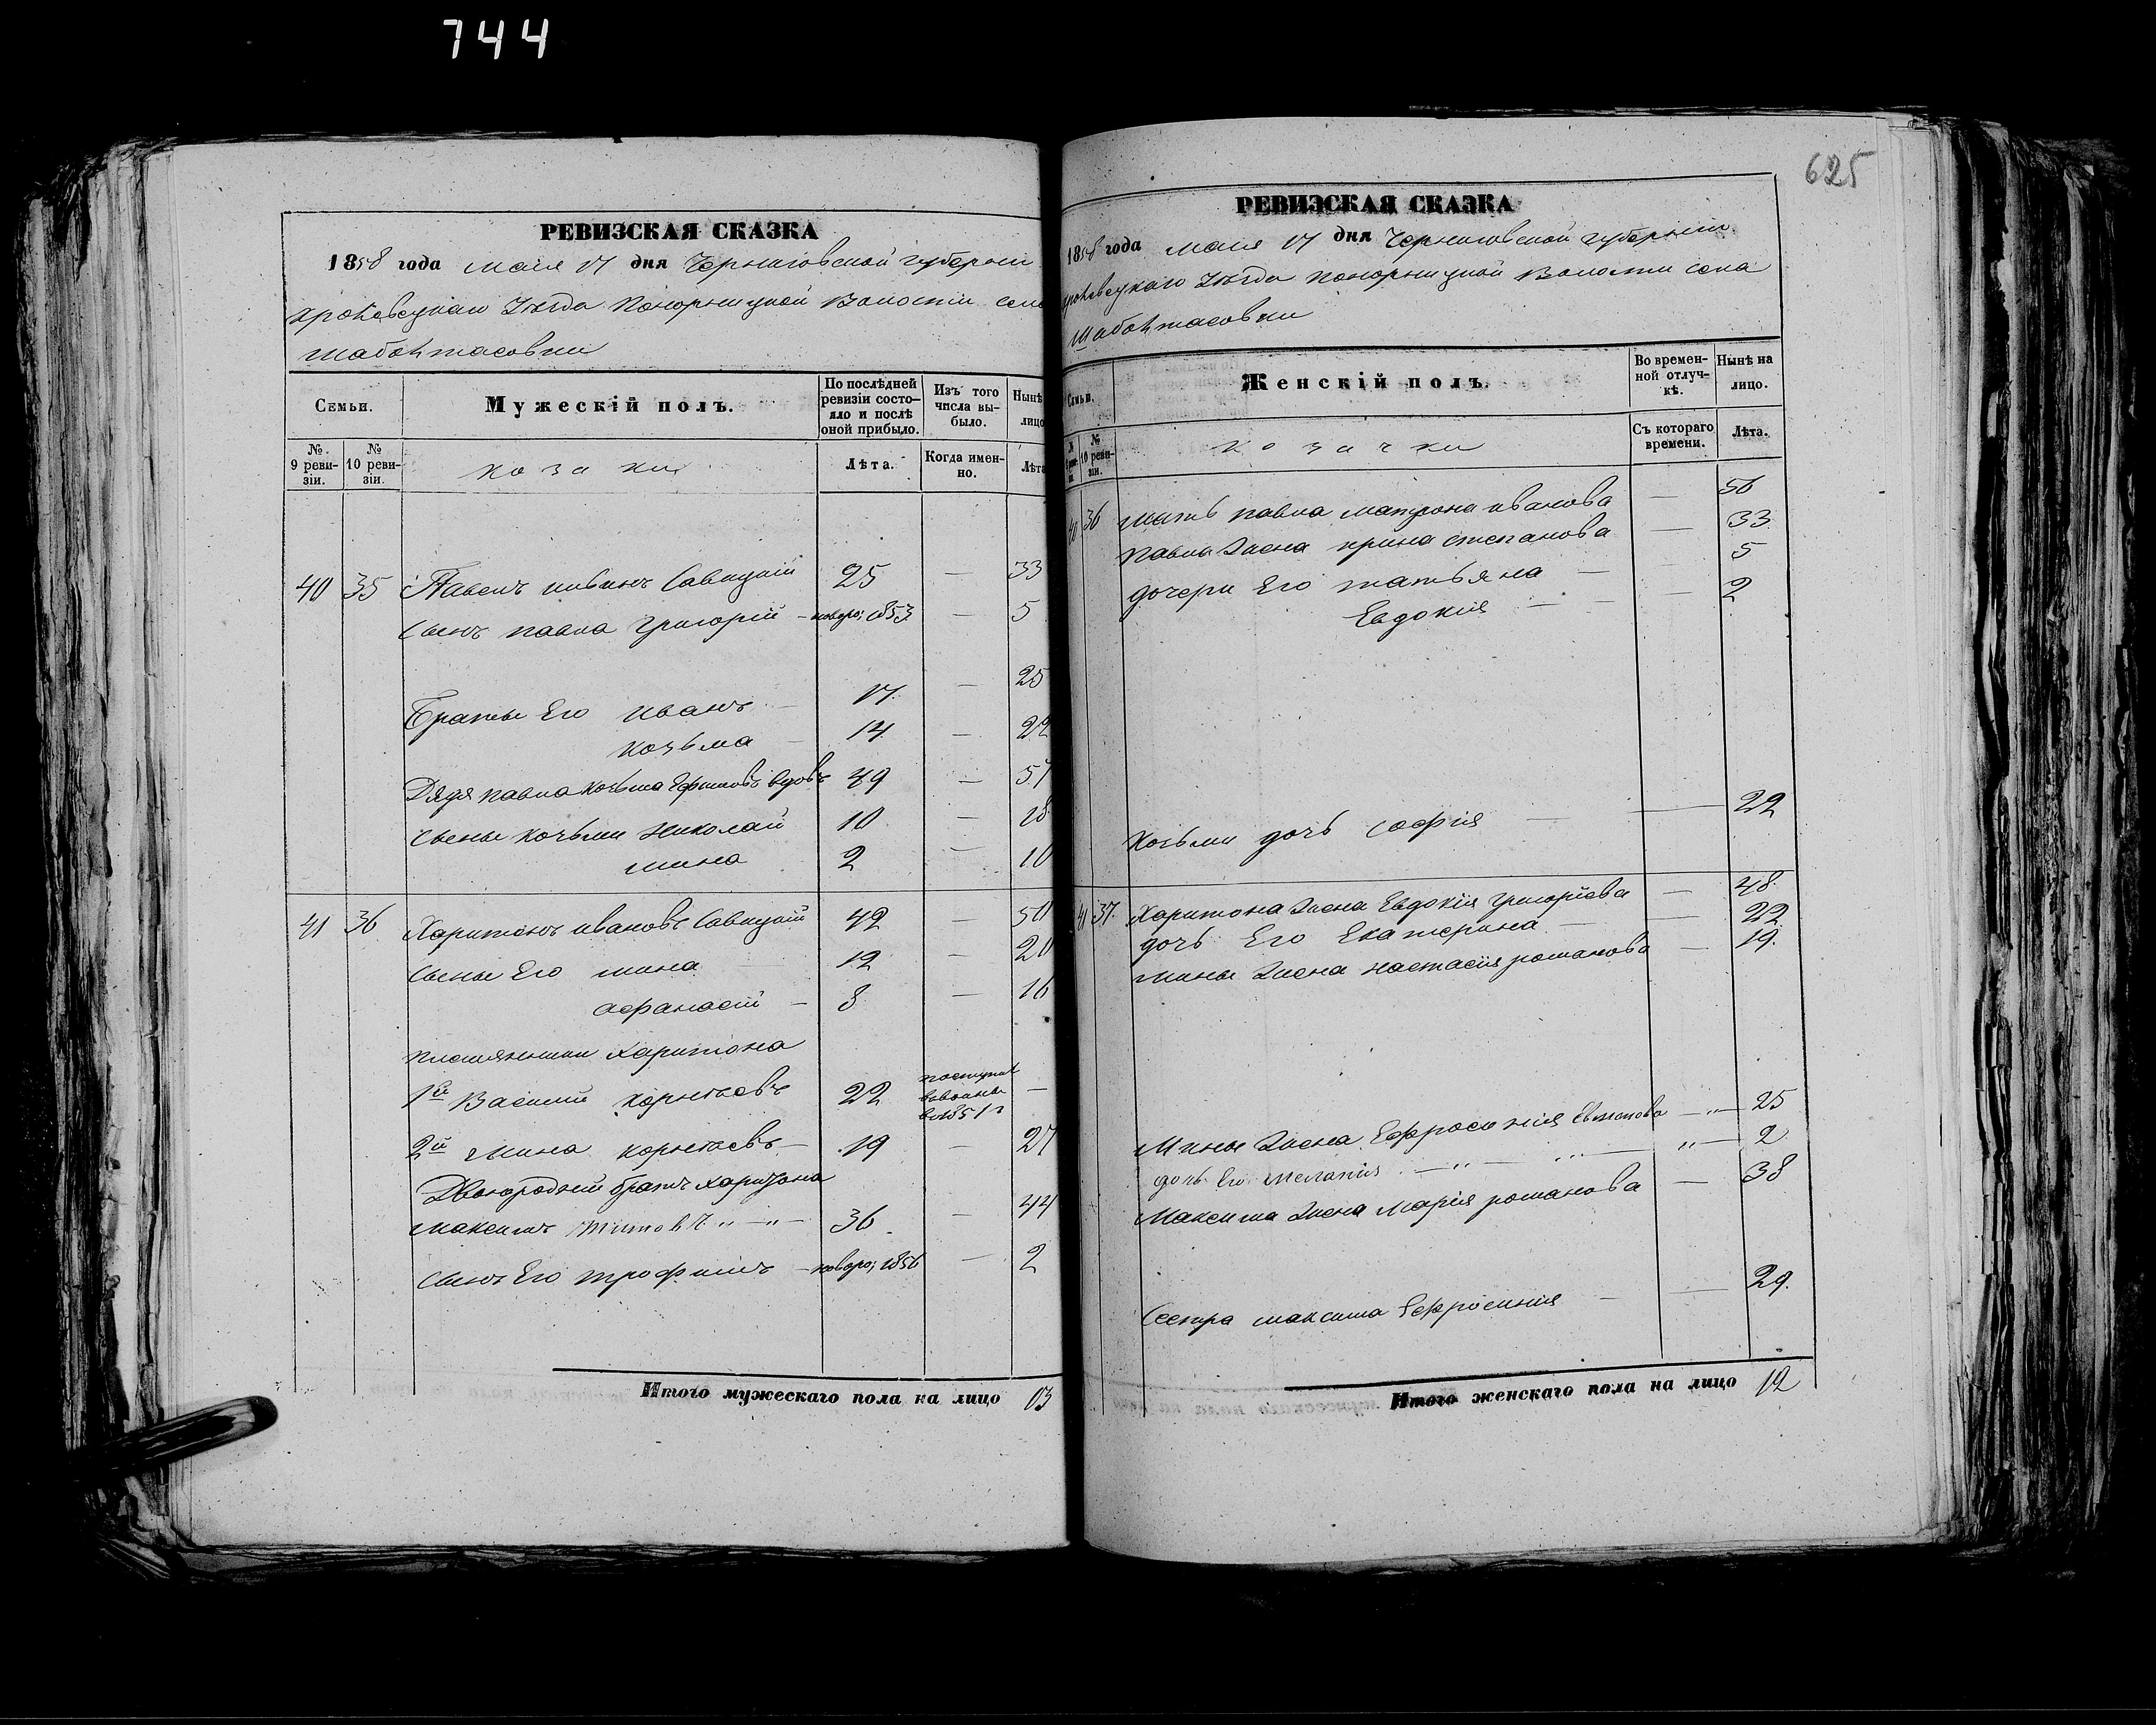 744
РЕВИЗСКАЯ СКАЗКА
1858 года мая 17 дня Черниговской губернии
кролевецкаго Уезда Понорницкой Волости села
шабалтасовки
Семьи.
Мужескій полъ.
По послѣдней ревизіи состояло и послѣ оной прибыло.
Изъ того числа выбыло.
Нынѣ лицо
№ 9 ревизіи.
№ 10 ревизіи.
козаки
Лѣта.
Когда именно.
Лѣта
40 35 Павелъ ивановъ Савицкій 25 — 33
Сынъ павла григорій — новоро; 1853 — 5
Братья Его иванъ — 17. — 25
козьма — 14 — 22
Дядя павла козьма вдовъ 49 — 57
Сыны козьми Николай 10 — 18
мина 2 — 10
41 36 Харитонъ ивановъ Савицкій 42 — 50
Сыны Его мина 12 — 20
афанасій — 8 — 16
племянники Харитона
1й Василій корнѣевъ 22 поступил в 1851 г —
2й мина корнѣевъ — 19 — 27
Двоюродный братъ харитона
максимъ титовъ „ — „ — 36. — 44
Сынъ Его трофимъ — новоро; 1856 — 2
Итого мужескаго пола на лицо 13
625
РЕВИЗСКАЯ СКАЗКА
1858 года мая 17 дня Черниговской губернии
кролевецкаго Уезда понорницкой Волости села
Шабалтасовки
Семьи.
Женскій полъ.
Во временной отлучкѣ.
Нынѣ на лицо.
№ 10 ревизіи.
козачки
Съ котораго времени.
Лѣта.
40 36 мать павла матрона иванова — 56
павла жена ирина степанова — 33
дочери Его татьяна — 5
Евдокія — — 2
козьми дочь софія — — 22
41 37. Харитона жена Евдокія григоріева — 48.
дочь Его Екатерина — — 22
мины жена настасія романова — 19.
Мины жена Ефросинія — „ — 25
дочь Его меланія — „ — „ — „ — 2
Максима жена марія романова — 38
Сестра максима Ефросинія — — 29.
Итого женскаго пола на лицо 12